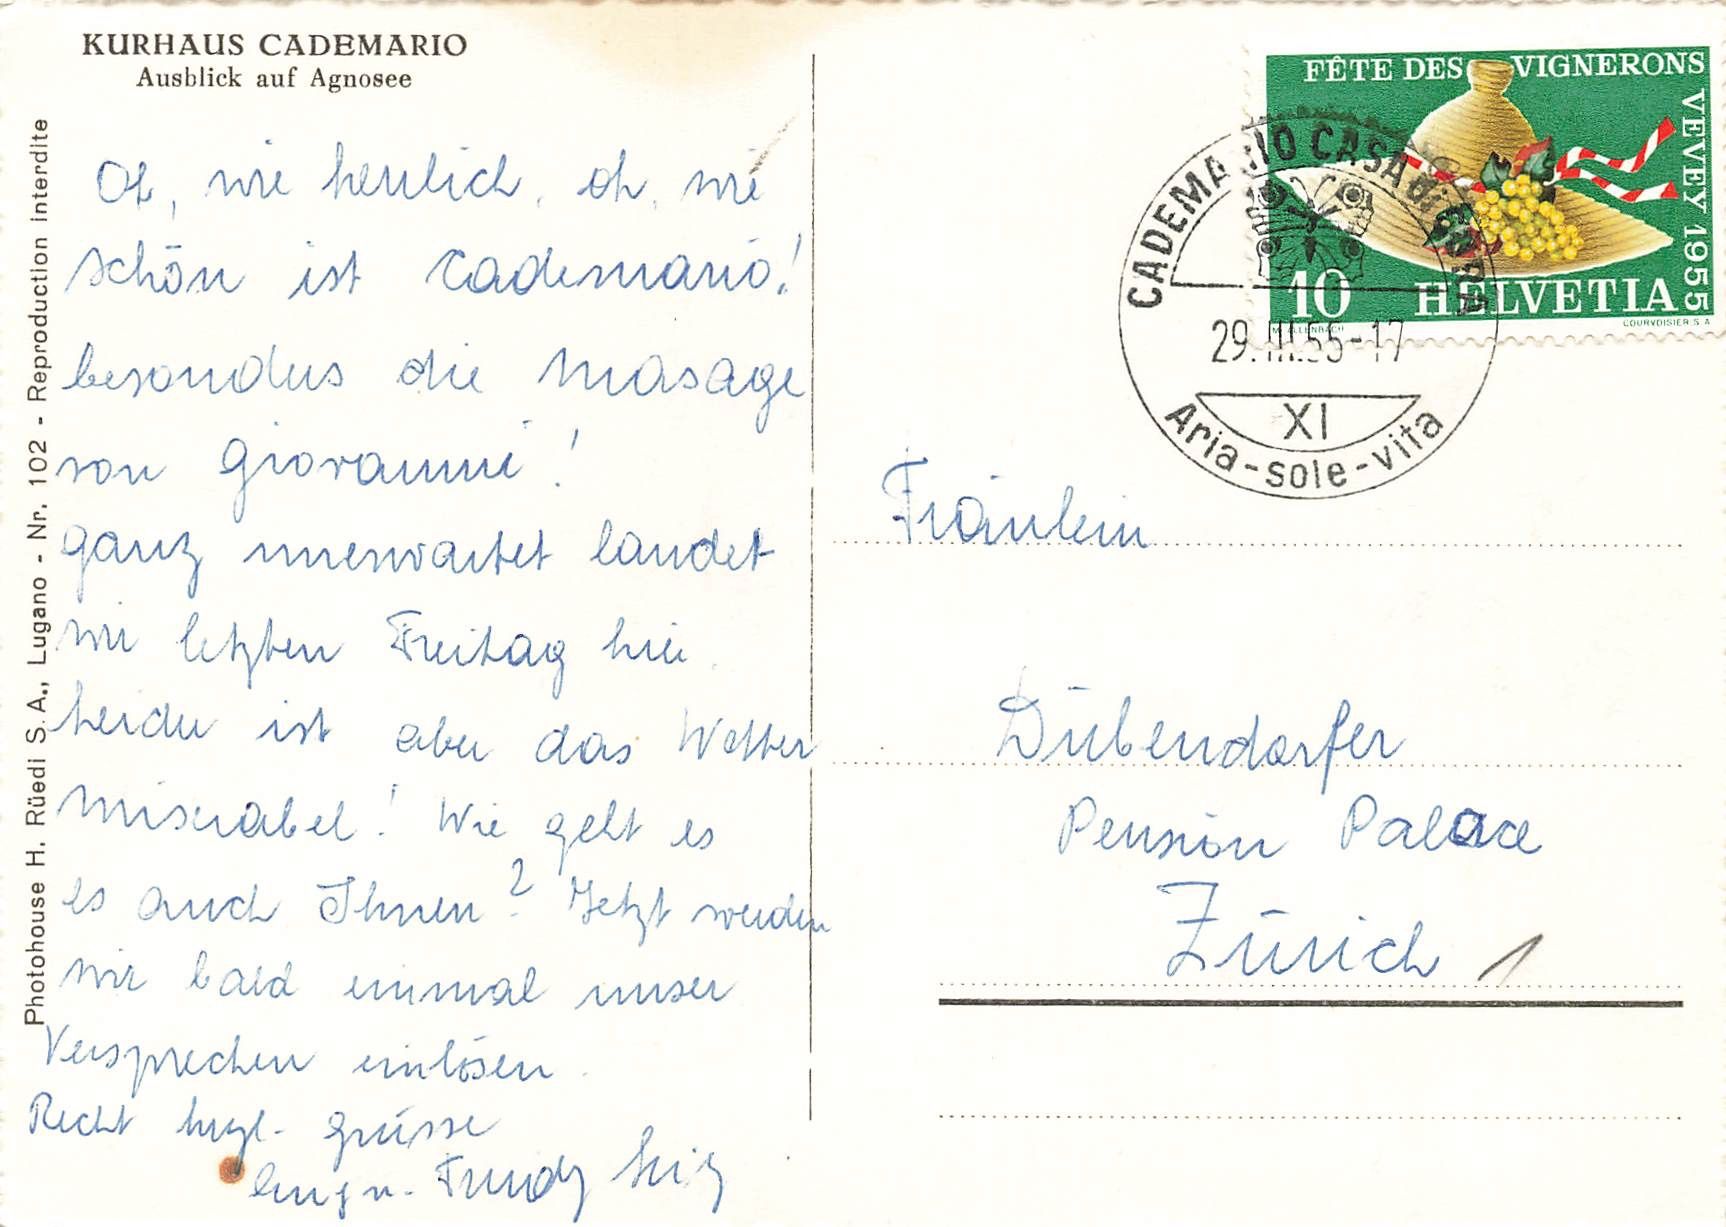 KURHAUS CADEMARIO
Ausblick auf Agnosee
Photohouse H. Rüedi S.A., Lugano - Nr. 102 - Reproduction interdite
Oh, wie herrlich, oh, wie
schön ist Cademario!
besonders die Masage
von Giovanni!
ganz unerwartet landet
wir letzten Freitag hier.
heider ist aber das Wetter
miserabel! Wie geht es
es auch Ihnen? Jetzt werden
wir bald einmal unser
Versprechen einlösen.
Recht herzl. grüsse
FÊTE DES VIGNERONS
VEVEY 1955
10 HELVETIA
COURVOISIER S A
CADEMARIO CASA DI CURA
29.III.55-17
XI
Aria-sole-vita
Fräulein
Dübendorfer
Pension Palace
Zürich 1